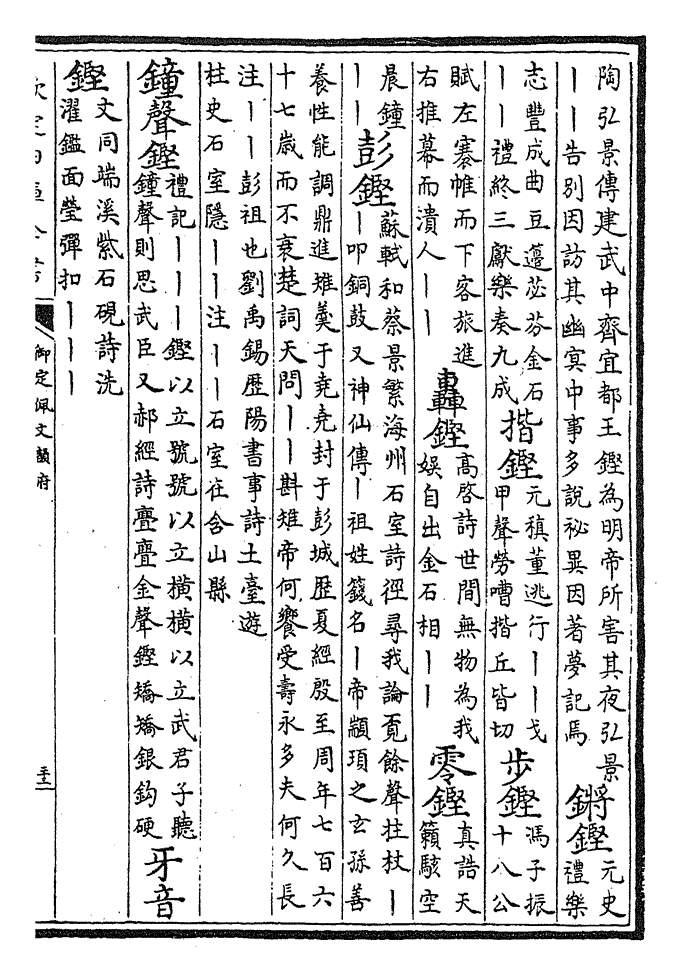 陶弘景傳建武中齊宜都王鏗為明帝所害其夜弘景
——告別因訪其幽冥中事多說祕異因著夢記焉
鏘鏗
元史
禮樂
志豐成曲豆籩苾芬金石
——禮終三獻樂奏九成
揩鏗
元稹董逃行——戈
甲聲勞嘈揩丘皆切
步鏗
馮子振
十八公
賦左搴帷而下客旅進
右推幕而潰人——
轟鏗
高啓詩世間無物為我
娛自出金石相——
零鏗
真誥天
籟駭空
晨鐘
——
彭鏗
蘇軾和蔡景繁海州石室詩徑尋我論覓餘聲拄杖—
—叩銅鼓又神仙傳—祖姓籛名—帝顓頊之玄孫善
養性能調鼎進雉羹于堯堯封于彭城歷夏經殷至周年七百六
十七歲而不衰楚詞天問——斟雉帝何饗受壽永多夫何久長
注——彭祖也劉禹錫歷陽書事詩土臺遊
柱史石室隱——注——石室在含山縣
鐘聲鏗
禮記———鏗以立號號以立橫橫以立武君子聽
鐘聲則思武臣又郝經詩亹亹金聲鏗矯矯銀鈎硬
牙音
鏗
文同端溪紫石硯詩洗
濯鑑面瑩彈扣———
欽定四庫全書
御定佩文韻府